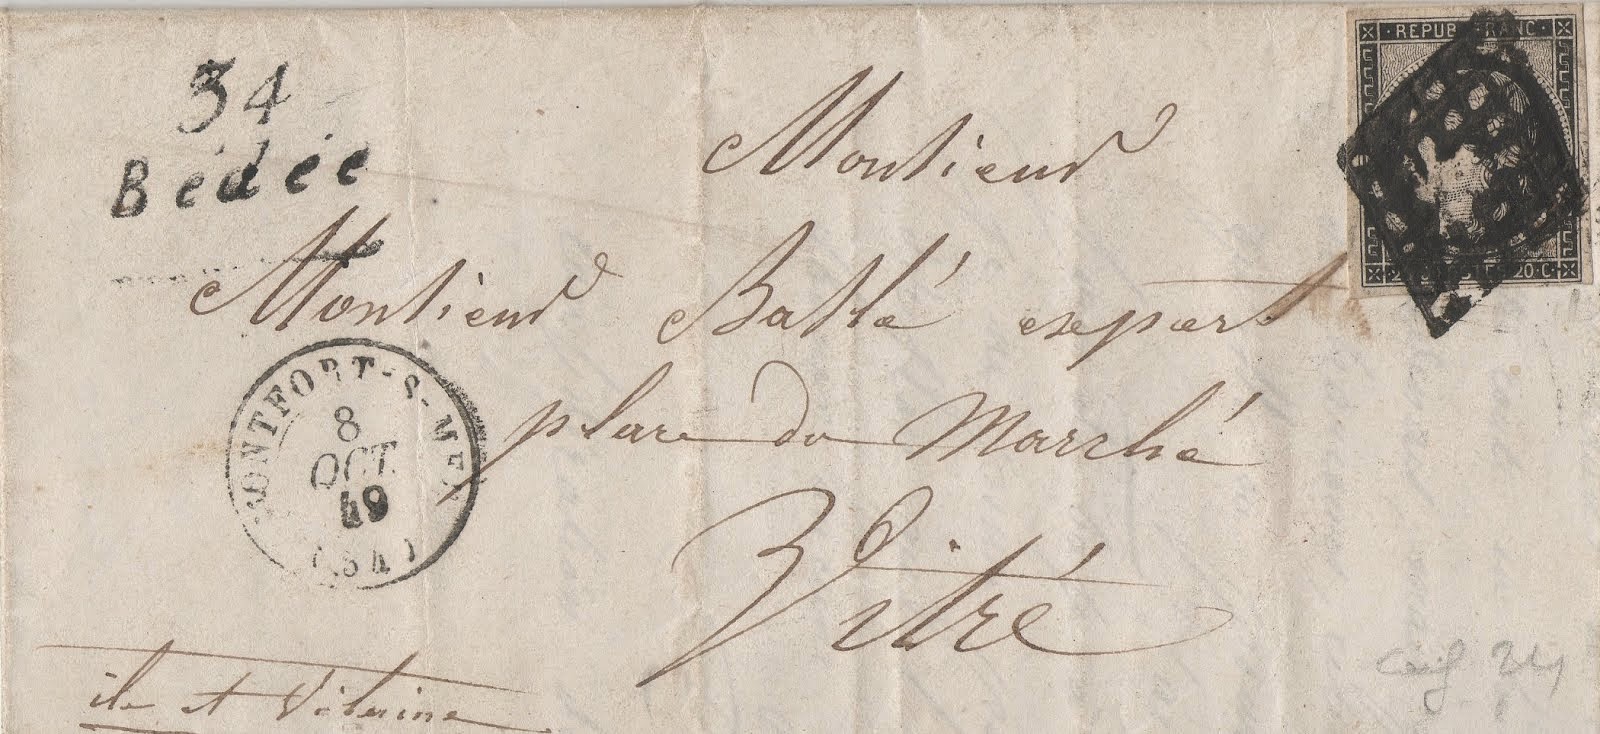 34
Bédée
REPUB FRANC
20 C
Monsieur
Monsieur Batlé expert
place du Marché
Vitré
MONTFORT-S-MEU
8
OCT.
49
(34)
ile et Vilaine